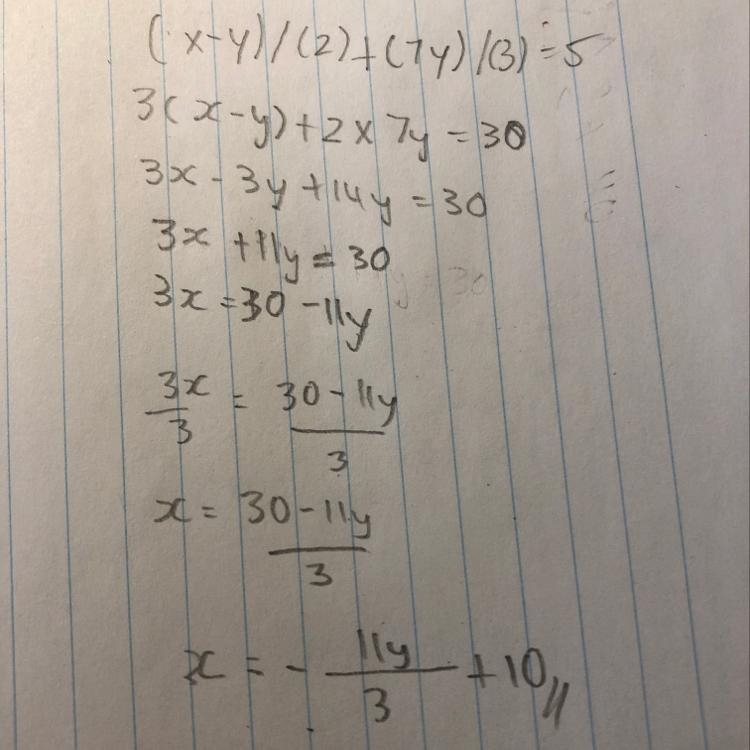 (x-y)/(2)+(7y)/(3)=5
3(x-y)+2x7y=30
3x-3y+14y=30
3x+11y=30
3x=30-11y
3x/3=30-11y/3
x=30-11y/3
x=-11y/3+10//